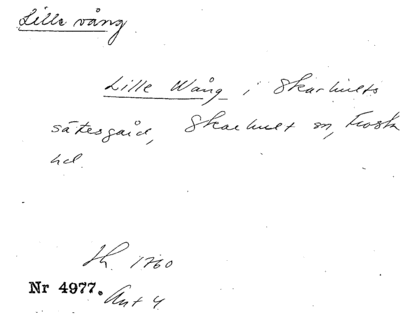 Lille vång
Lille Wång i Skarhults
sätesgård, Skarhult sn, Frosta
hd.
Jh. 1760
Nr 4977.
Akt 4